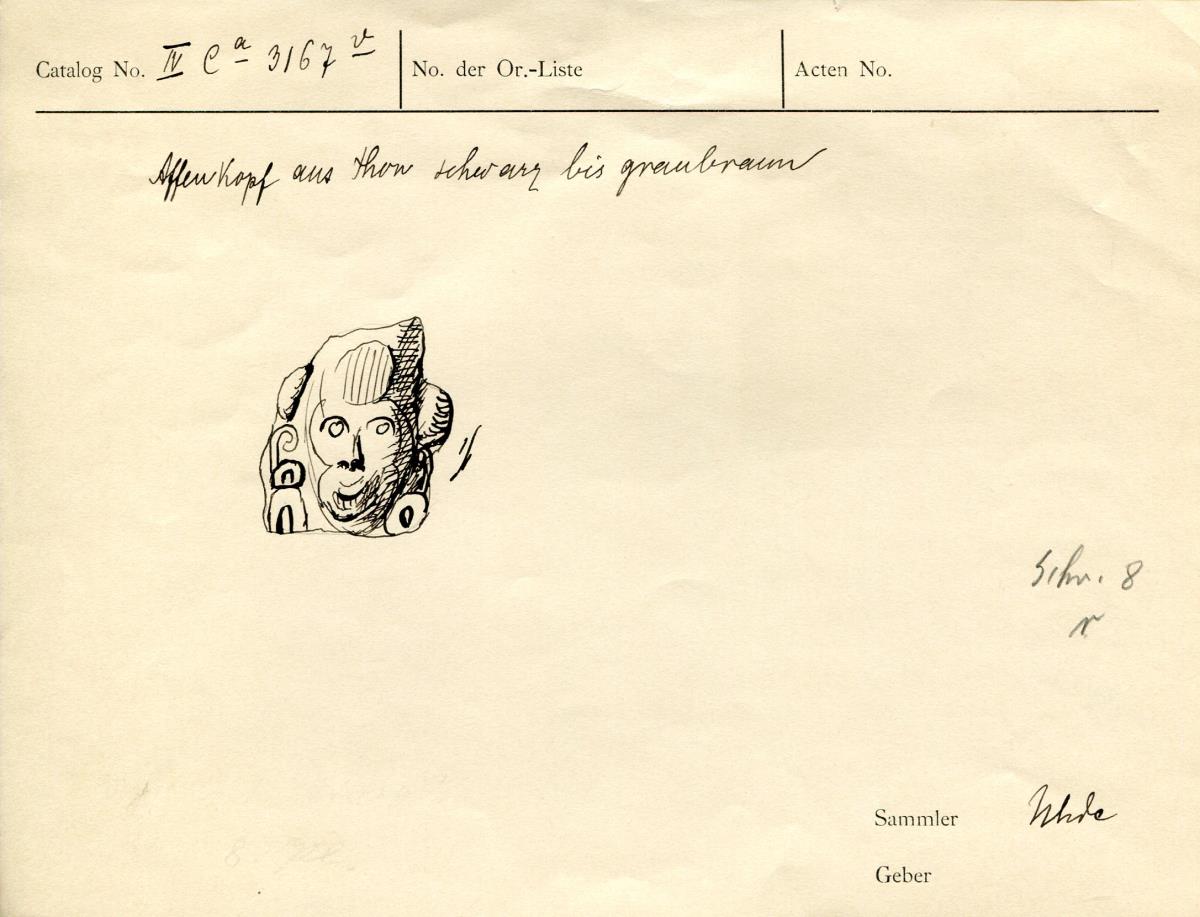 Catalog No. IV Ca 3167 v
No. der Or.-Liste
Acten No.
Affenkopf aus Thon schwarz bis graubraun
1/1
Schr. 8
r
Sammler Uhde
Geber